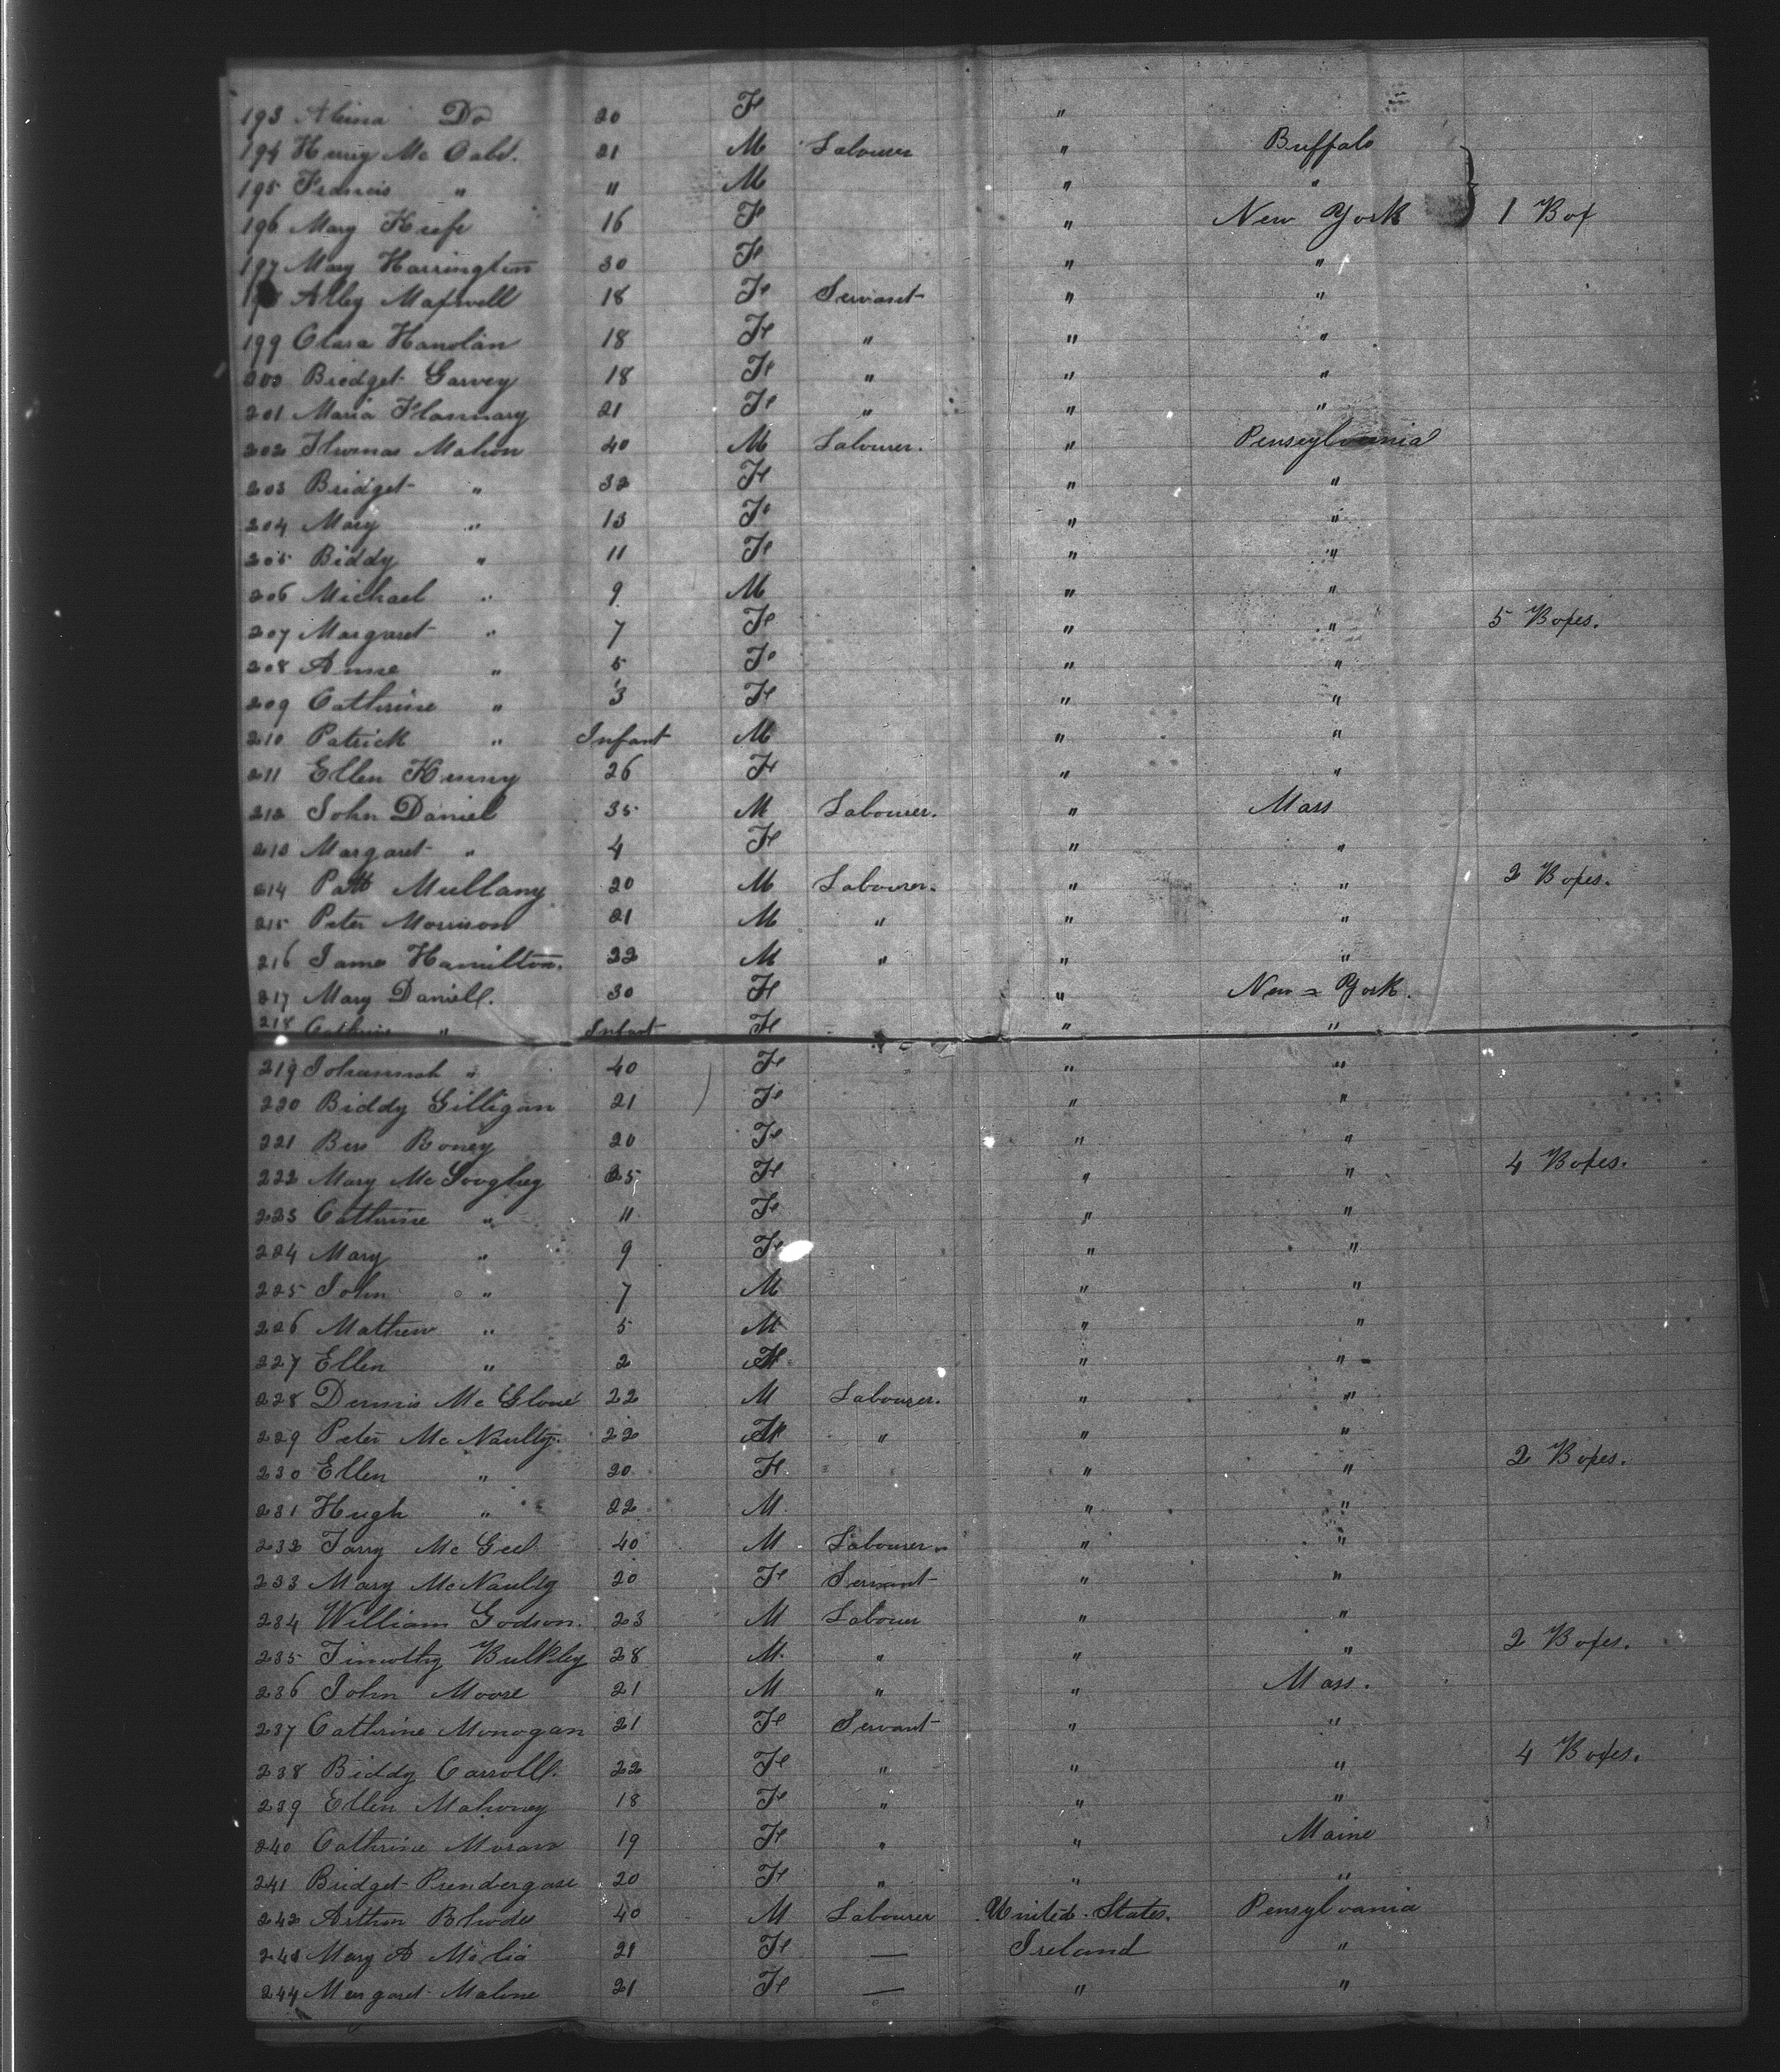 193 Abina Do 20 F "
194 Henry Mc Cabe. 21 M Labourer " Buffalo
195 Francis " " M " "
196 Mary Keefe 16 F " New York } 1 Box
197 Mary Harrington 30 F " "
Alley Maxwell 18 F Servant " "
199 Clara Hanolan 18 F " " "
200 Bridget Garvey 18 F " " "
201 Maria Flannary 21 F " " "
202 Thomas Mahon 40 M Labourer. " Pensylvania
203 Bridget " 32 F " "
204 Mary " 13 F " "
205 Biddy " 11 F " "
206 Michael " 9 M " "
207 Margaret " 7 F " " 5 Boxes.
208 Anne " 5 F " "
209 Catherine " 3 F " "
210 Patrick " Infant M " "
211 Ellen Kenny 26 F " "
212 John Daniel 35 M Labourer. " Mass
213 Margaret " 4 F " "
214 Patt Mullany 20 M Labourer. " " 2 Boxes.
215 Peter Morrison 21 M " " "
216 James Hamilton. 22 M " " "
217 Mary Daniell. 30 F " New = York.
218 " Infant F " "
219 Johannah " 40 F " "
220 Biddy Gilligan 21 F " "
221 Bess Roney 20 F " "
222 Mary Mc 35 F " " 4 Boxes.
223 Cathrine " 11 F " "
224 Mary " 9 F " "
225 John " 7 M " "
226 Mathew " 5 M " "
227 Ellen " 2 F " "
228 Dennis Mc Glone 22 M Labourer. " "
229 Peter Mc Naulty. 22 M " " "
230 Ellen " 20 F " " 2 Boxes.
231 Hugh " 22 M. " "
232 Tarry Mc Geel 40 M Labourer. " "
233 Mary McNaulty 20 F Servant " "
234 William Godson. 23 M Labouer " "
235 Timothy Bulkley 28 M. " " " 2 Boxes.
236 John Moore 21 M " " Mass.
237 Cathrine Monogan 21 F Servant " "
238 Biddy Carroll. 22 F " " " 4 Boxes.
239 Ellen Mahoney 18 F " " "
240 Cathrine Moran 19 F " " Maine
241 Bridget Prendergase 20 F " " "
242 Arthur Rhodes 40 M Labourer United States. Pensylvania
243 Mary A Melia 21 F — Ireland "
244 Margaret Malone 21 F — " "